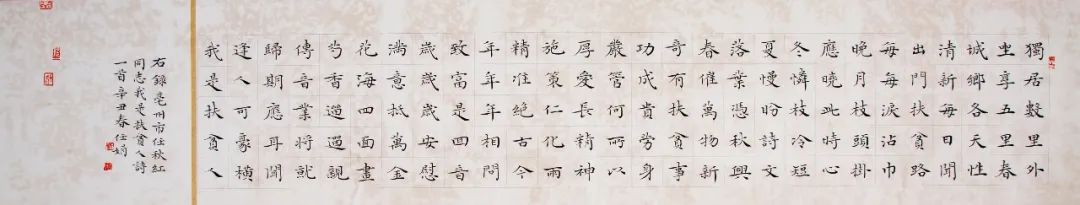 獨居數里外
坐享五里春
城鄉各天性
清新每日聞
出門扶貧路
每每淚沾巾
晚月枝頭掛
應曉此時心
冬憐枝冷短
夏慢盼詩文
落葉憑秋興
春催萬物新
奇有扶貧事
功成賞勞身
嚴管何所以
厚愛長精神
施策仁化雨
精准絕古今
年年年相問
致富是四音
歲歲歲安慰
滿意抵萬金
花海四面畫
芍香親
傳音業將就
歸期應耳聞
逢人可豪橫
我是扶貧人
右錄亳州市任秋紅
同志我是扶貧人詩
一首辛丑春任娟